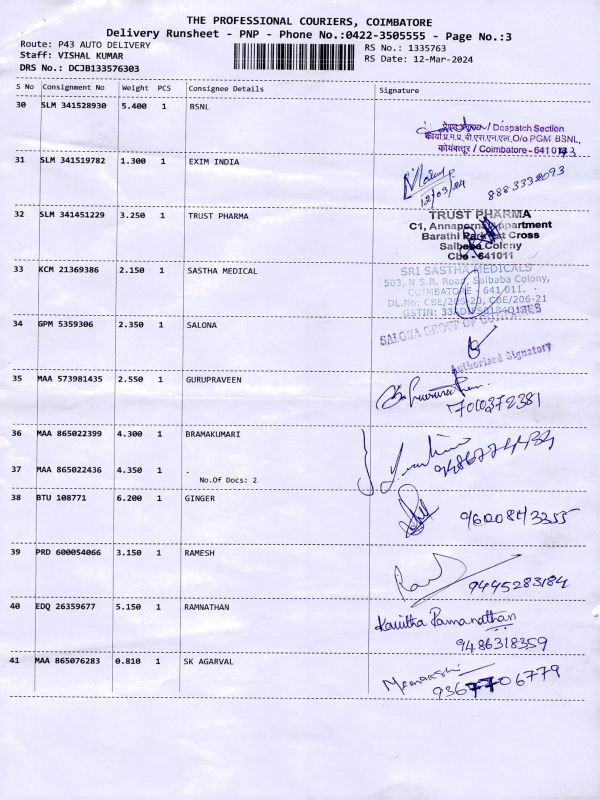 THE PROFESSIONAL COURIERS, COIMBATORE
Delivery Runsheet - PNP - Phone No.:0422-3505555 - Page No.:3
Route: P43 AUTO DELIVERY
Staff: VISHAL KUMAR
DRS No.: DCJB133576303
RS No.: 1335763
RS Date: 12-Mar-2024
S No Consignment No Weight PCS Consignee Details Signature
30 SLM 341528930 5.400 1 BSNL
/ Despatch Section
कार्या.प्र.म.प्र. बी.एस.एन.एल. O/o PGM, BSNL,
कोयंबत्तूर / Coimbatore - 641 043
31 SLM 341519782 1.300 1 EXIM INDIA
12/03/24 8883332093
32 SLM 341451229 3.250 1 TRUST PHARMA
TRUST PHARMA
C1, Annaporna Appartment
Barathi Park Ist Cross
Saibaba Colony
Cbe - 641011
33 KCM 21369386 2.150 1 SASTHA MEDICAL
SRI SASTHA MEDICALS
503, N.S.R. Road, Saibaba Colony,
COIMBATORE - 641 011.
DL.No: CBE/206-20, CBE/206-21
GSTIN:
34 GPM 5359306 2.350 1 SALONA
SALONA GROUP OF
Authorised Signatory
35 MAA 573981435 2.550 1 GURUPRAVEEN
7010372381
36 MAA 865022399 4.300 1 BRAMAKUMARI
37 MAA 865022436 4.350 1 .
No.Of Docs: 2
38 BTU 108771 6.200 1 GINGER
9600843355
39 PRD 600054066 3.150 1 RAMESH
9445283184
40 EDQ 26359677 5.150 1 RAMNATHAN
Kavitha Ramanathan
9486318359
41 MAA 865076283 0.810 1 SK AGARVAL
Meenakshi
9367706779